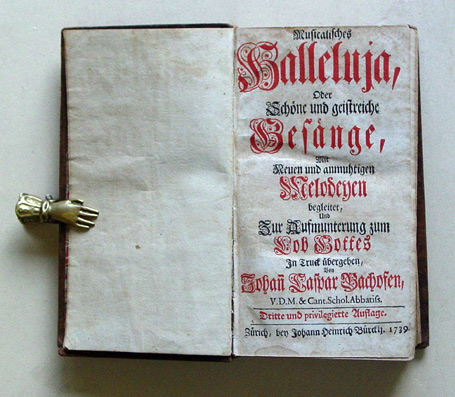 Musicalisches
Halleluja,
Oder
Schöne und geistreiche
Gesänge,
Mit
Neuen und anmuhtigen
Melodeyen
begleitet,
Und
Zur Aufmunterung zum
Lob Gottes
In Truck übergeben,
Von
Johañ Caspar Bachofen,
V.D.M. & Cant. Schol. Abbatiss.
Dritte und privilegierte Auflage.
Zürich, bey Johann Heinrich Bürcklj. 1739